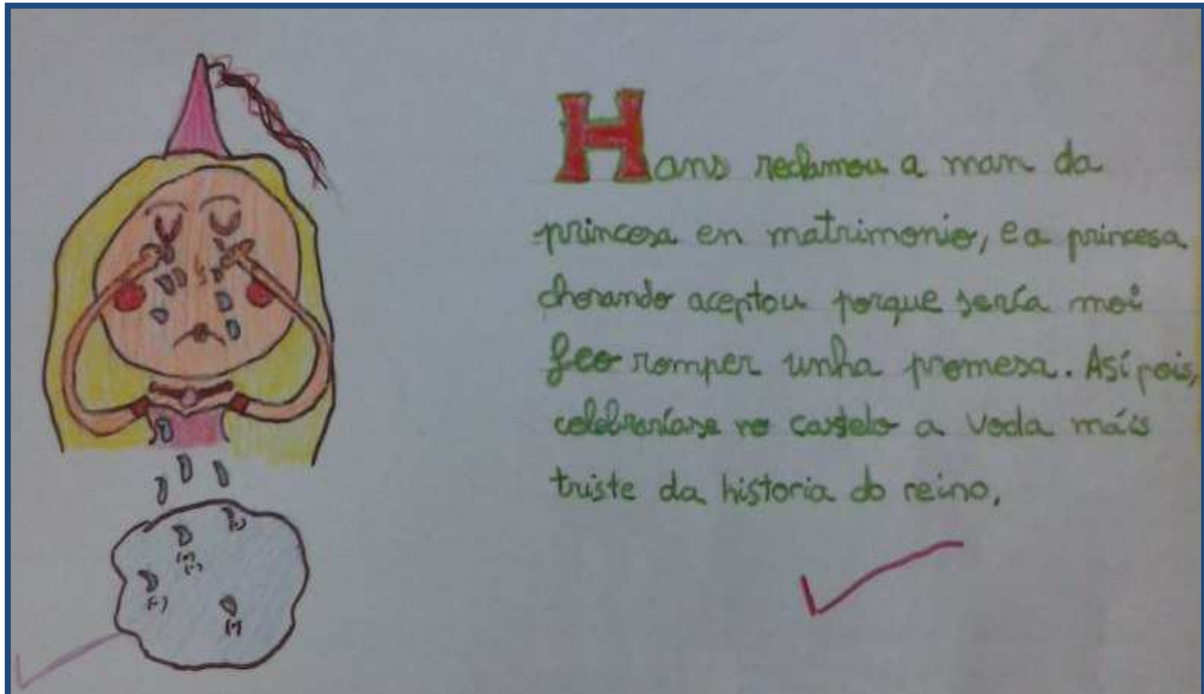 Hans reclamou a man da
princesa en matrimonio, e a princesa
chorando aceptou porque sería moi
feo romper unha promesa. Así pois,
celebraríase no castelo a voda máis
triste da historia do reino.